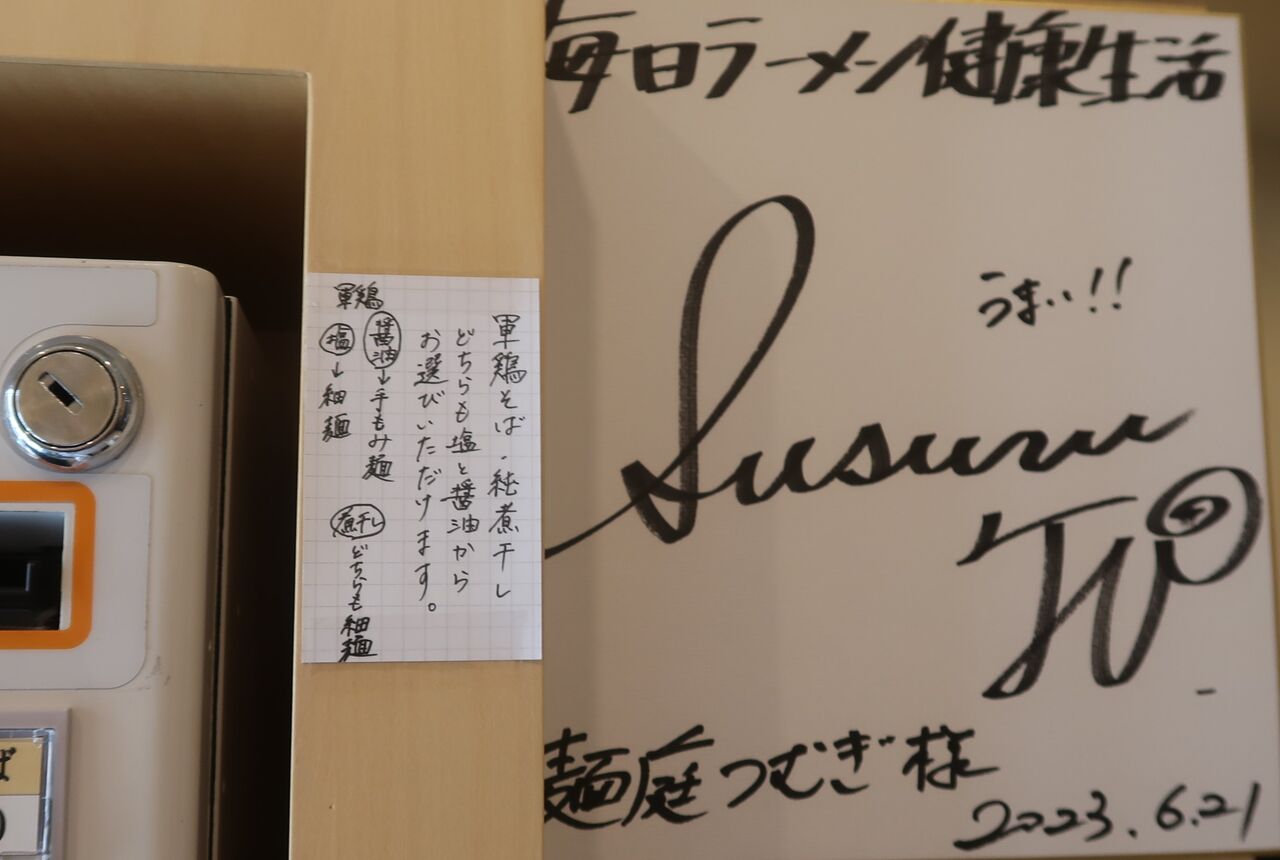 軍鶏そば・純煮干し
どちらも塩と醤油から
お選びいただけます。
軍鶏
醤油→手もみ麺
塩→細麺
煮干し
どちらも細麺
毎日ラーメン健康生活
うまい!!
Susuru
TV
麺庭つむぎ様
2023.6.21
ば